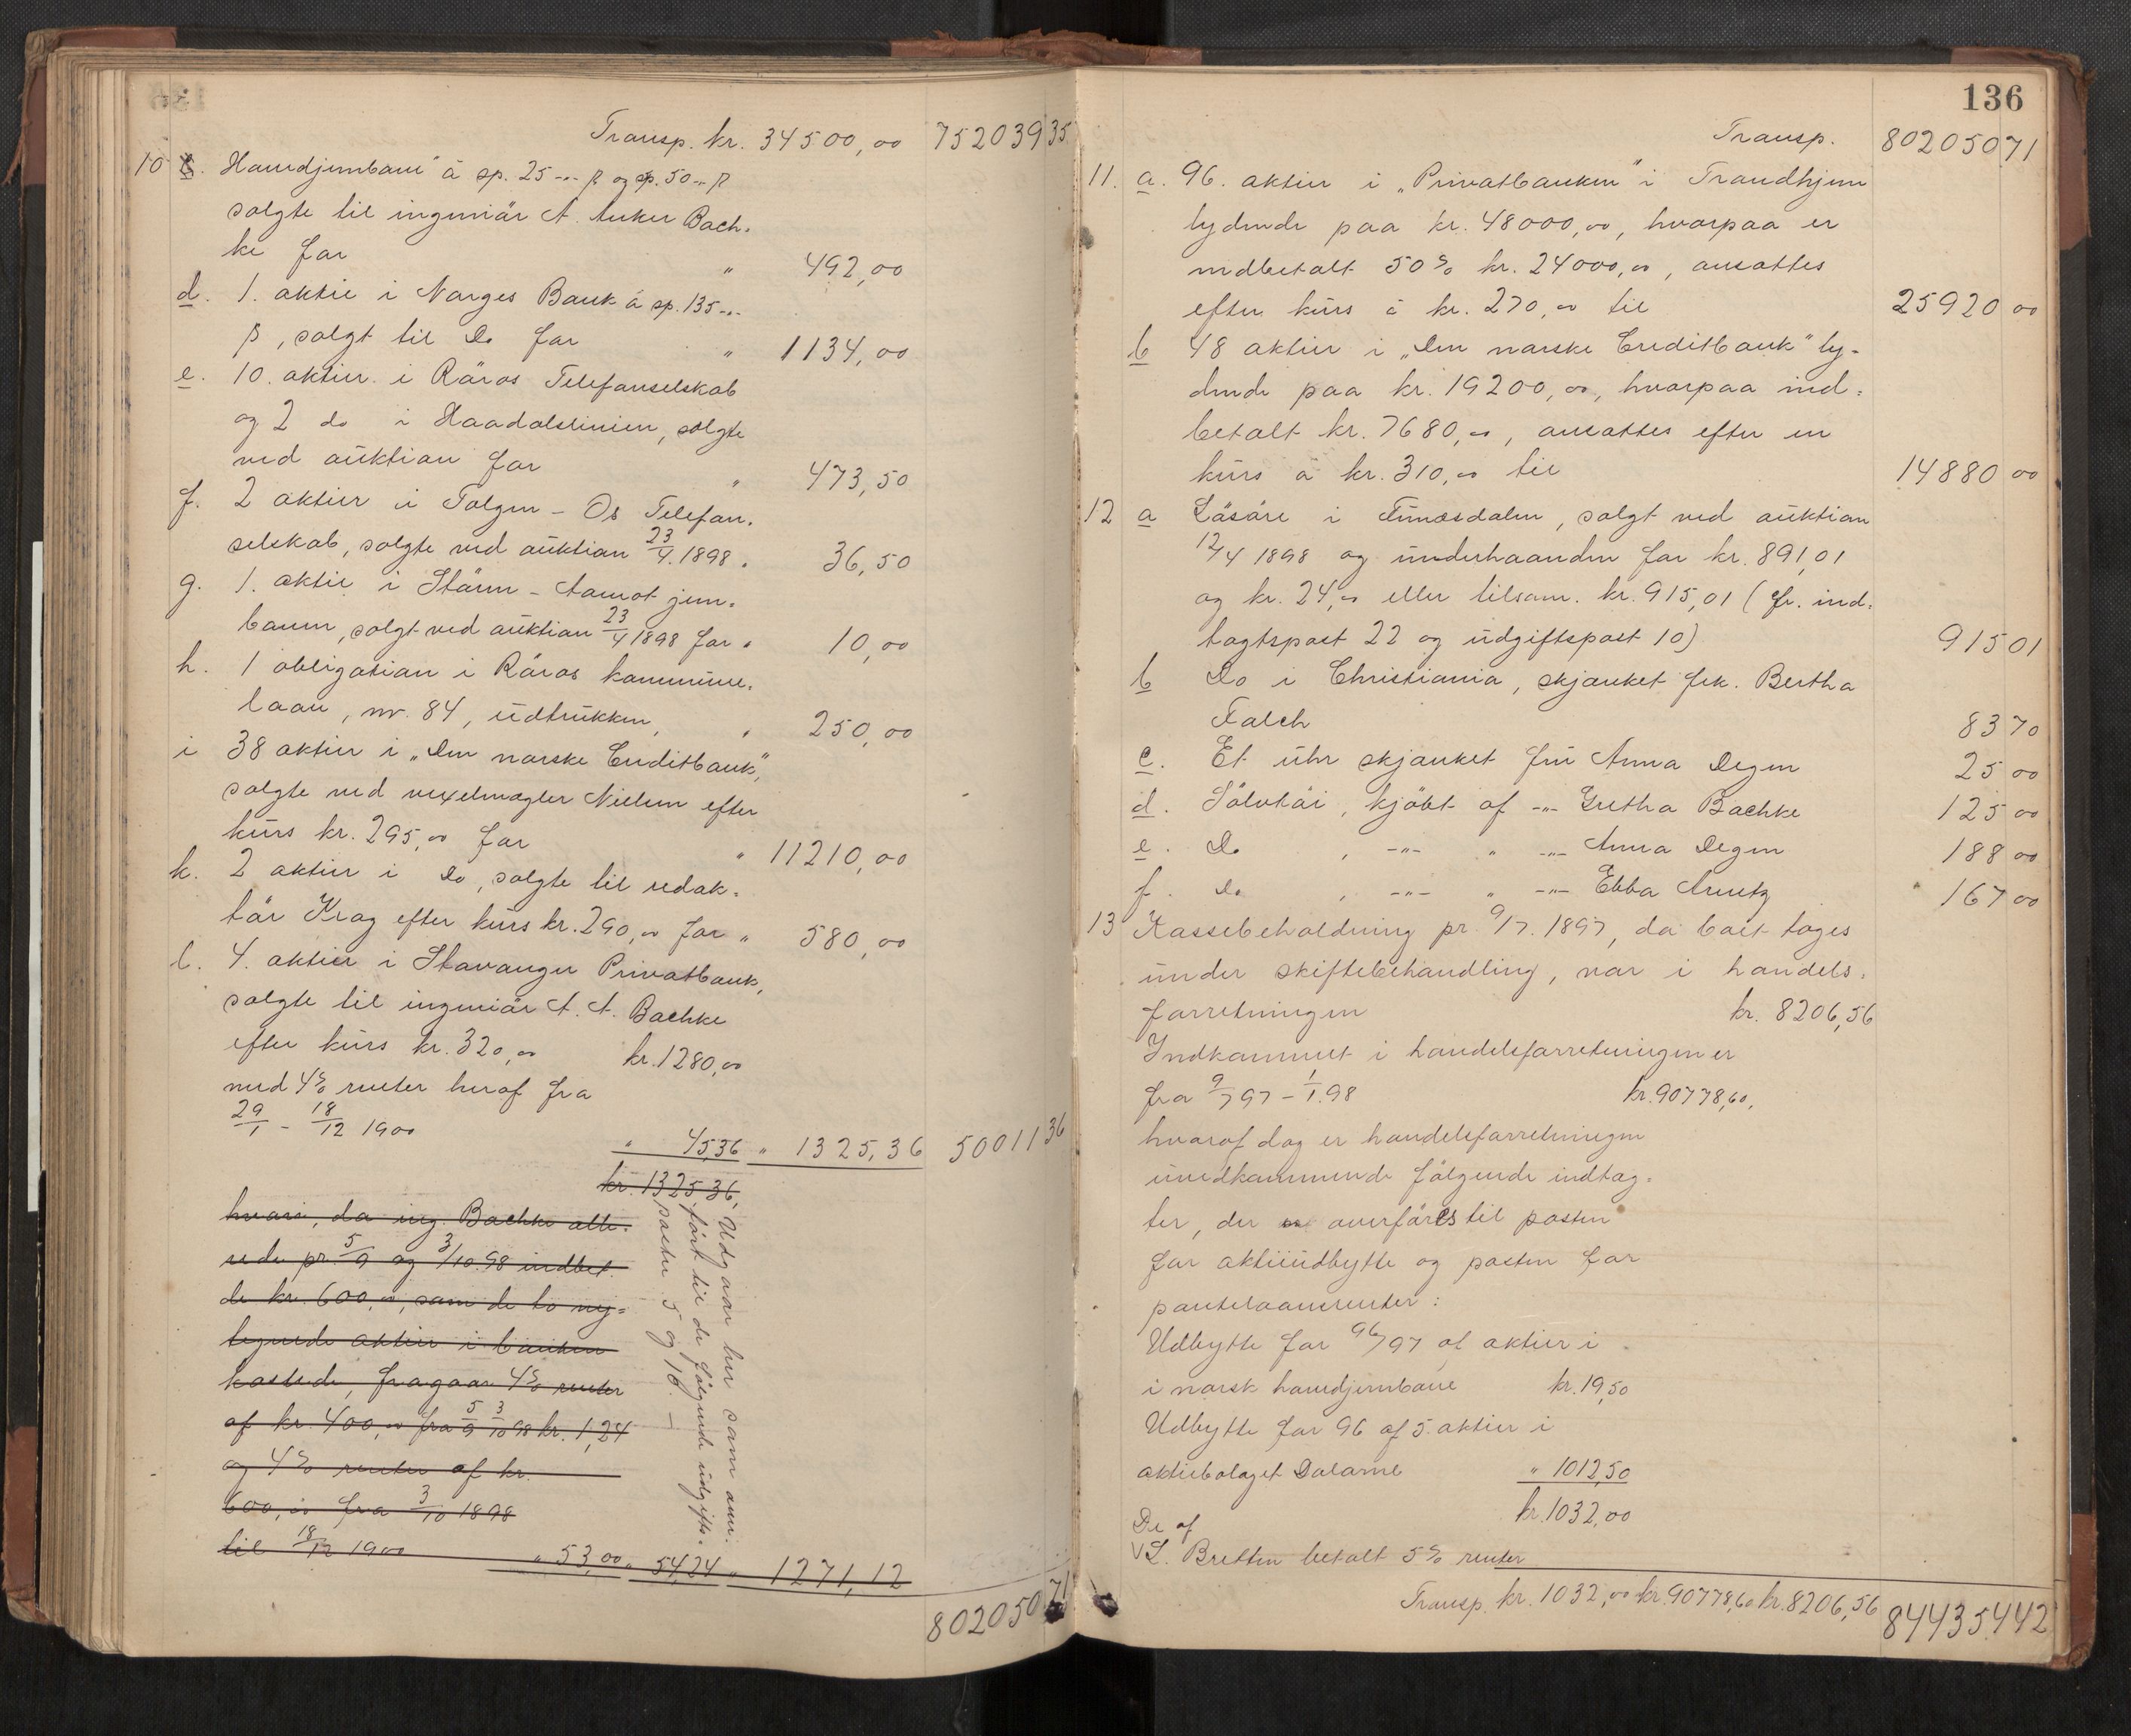 Transp. kr. 34500,00 75203935
10 c. Hamdjernbane" à sp. 25 -"- ß og sp. 50 -"- ß
solgte til ingeniör A. Anker Bach-
ke for " 492,00
d. 1. aktie i Norges Bank à sp. 135 -"-
ß, solgt til Do for " 1134,00
e. 10. aktier i Röros Telefonselskab
og 2 do i Haadalslinien, solgte
ved auktion for " 473,50
f. 2 aktier i Tolgen - Os Telefon-
selskab, solgte ved auktion 23/4. 1898 " 36,50
g. 1. aktie i Stören - Aamot jern-
banen, solgt ved auktion 23/4 1898 for " 10,00
h. 1 obligation i Röros kommune-
laan, nr. 84, udtrukken, " 250,00
i 38 aktier i "Den norske Creditbank",
solgte ved vexelmægler Nielsen efter
kurs kr. 295,00 for " 11210,00
k. 2 aktier i Do, solgte til redak-
tör Krag efter kurs kr. 290,00 for " 580,00
l. 4. aktier i Stavanger Privatbank,
solgte til ingeniör A. A. Bachke
efter kurs kr. 320,00 kr. 1280,00
med 4% renter heraf fra
29/1 - 18/12 1900 " 45,36 " 1325,36 5001136
kr. 1325,36,
hvori, da ing. Bachke alle-
rede pr. 5/9 og 3/10.98 indbet.
de kr. 600,00, som de to ny-
tegnede aktier i banken
kostede, fragaar 4% renter
af kr. 400,00 fra 5/9 3/10 98 kr. 1,24
og 4% renter af kr.
600,00 fra 3/10 1898
til 18/12 1900 " 53,00 " 54,24 " 1271,12
Udgaar her som over-
ført til de følgende udgifts-
poster 5 og 16. —
80205071
136
Transp. 80205071
11. a. 96. aktier i "Privatbanken" i Trondhjem
lydende paa kr. 48000,00, hvorpaa er
indbetalt 50% kr. 24000,00, ansattes
efter kurs à kr. 270,00 til 25920 00
b 48 aktier i "Den norske Creditbank" ly-
dende paa kr. 19200,00, hvorpaa ind-
betalt kr. 7680,00, ansattes efter en
kurs à kr. 310,00 til 14880 00
12 a Lösöre i Funæsdalen, solgt ved auktion
12/4 1898 og underhaanden for kr. 891,01
og kr. 24,00 eller tilsam. kr. 915,01 (jfr. ind-
tægtspost 22 og udgiftspost 10) 915 01
b Do i Christiania, skjænket frk. Bertha
Falch 83 70
c. Et uhr skjænket fru Anna Degen 25 00
d. Sölvtöi, kjöbt af -"- Gretha Bachke 125 00
e. Do , -"- " -"- Anna Degen 188 00
f. Do , -"- " -"- Ebba Arentz 167 00
13 Kassebeholdning pr. 9/7. 1897, da boet toges
under skiftebehandling, var i handels-
forretningen kr. 8206,56
Indkommet i handelsforretningen er
fra 9/7 97 - 1/1. 98 kr. 90778,60,
hvoraf dog er handelsforretningen
uvedkommende fölgende indtæg-
ter, der overföres til posten
for aktieudbytte og posten for
pantelaansrenter:
Udbytte for 96/97 af aktier i
i norsk hamdjernbane kr. 19,50
Udbytte for 96 af 5. aktier i
aktiebolaget Dalarne " 1012,50
kr. 1032,00
De af
L. Bretten betalt 5% renter
Transp. kr. 1032,00 kr. 90778,60 kr. 8206,56 84435442